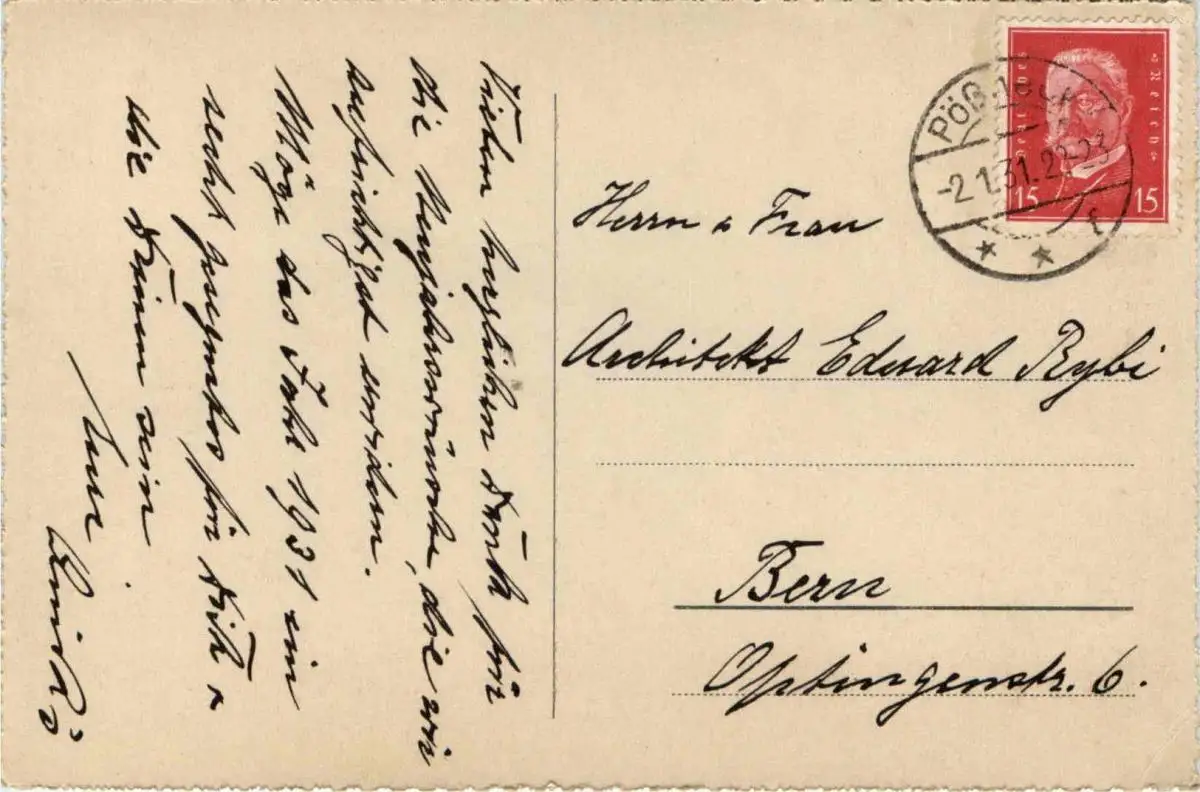 Vielen herzlichen Dank für
die Neujahrswünsche, die wir
aufrichtigst erwidern.
Möge das Jahr 1931 ein
recht gesegnetes für Dich u
die Deinen sein
Herrn & Frau
Architekt Eduard Rybi
Bern
Optingenstr. 6.
Deutsches Reich
15 15
PÖßNECK
-2.1.31.22-23
* * f